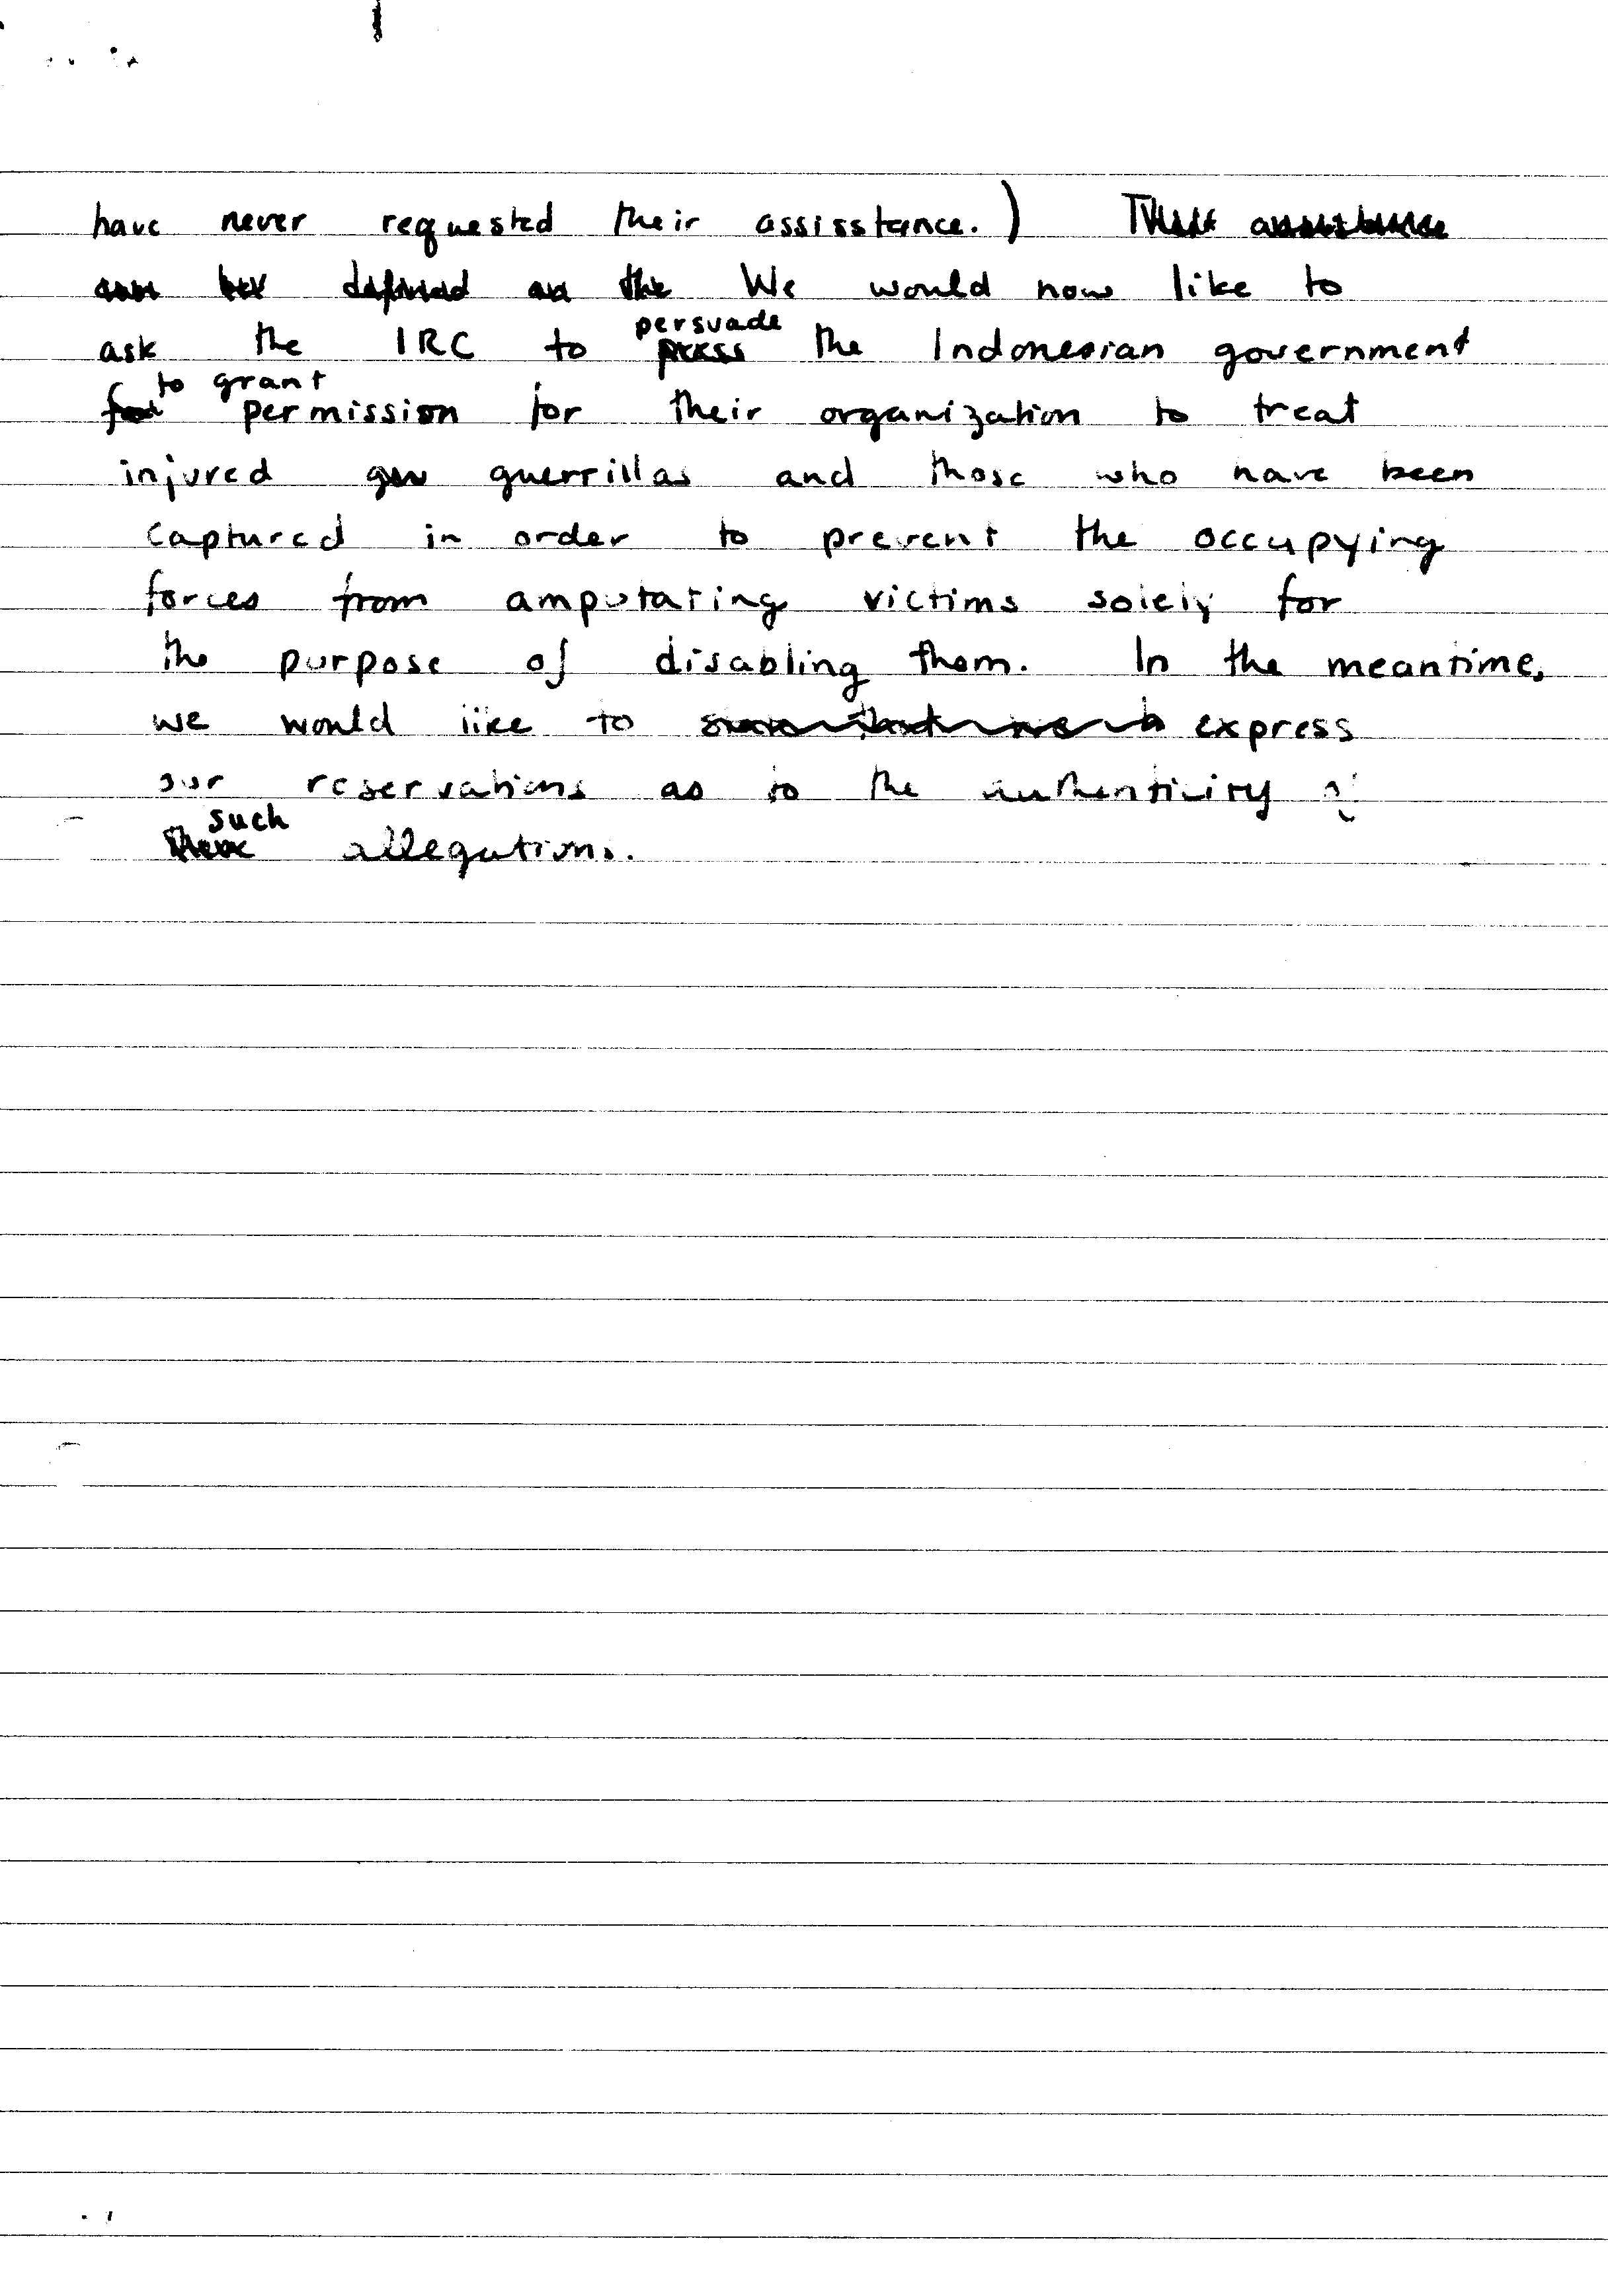 have never requested their assisstance.)
We would now like to
ask the IRC to persuade the Indonesian government
to grant permission for their organization to treat
injured guerrillas and those who have been
captured in order to prevent the occupying
forces from amputating victims solely for
the purpose of disabling them. In the meantime,
we would like to express
our reservations as to the authenticity of
such allegations.